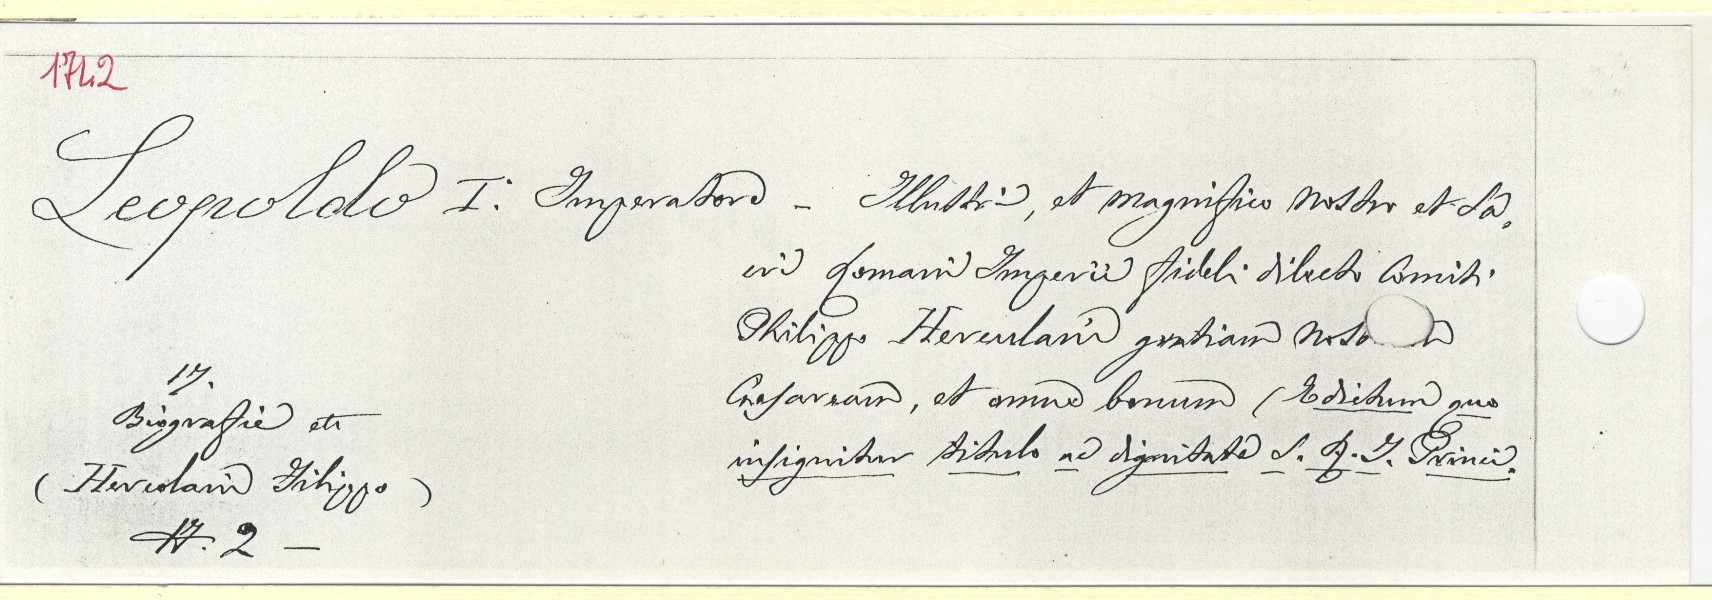 1742
Leopoldo I: Imperatore - Illustri, et magnifico nostro et Sa,
cri Romani Imperii fideli dilecto Comiti
Philippo Herculani gratiam nost
Cæsaream, et omne bonum (Edictum quo
insignitur titulo ac dignitate S. R. I. Princi,
17.
Biografie etc
(Hercolani Filippo)
17. 2 —